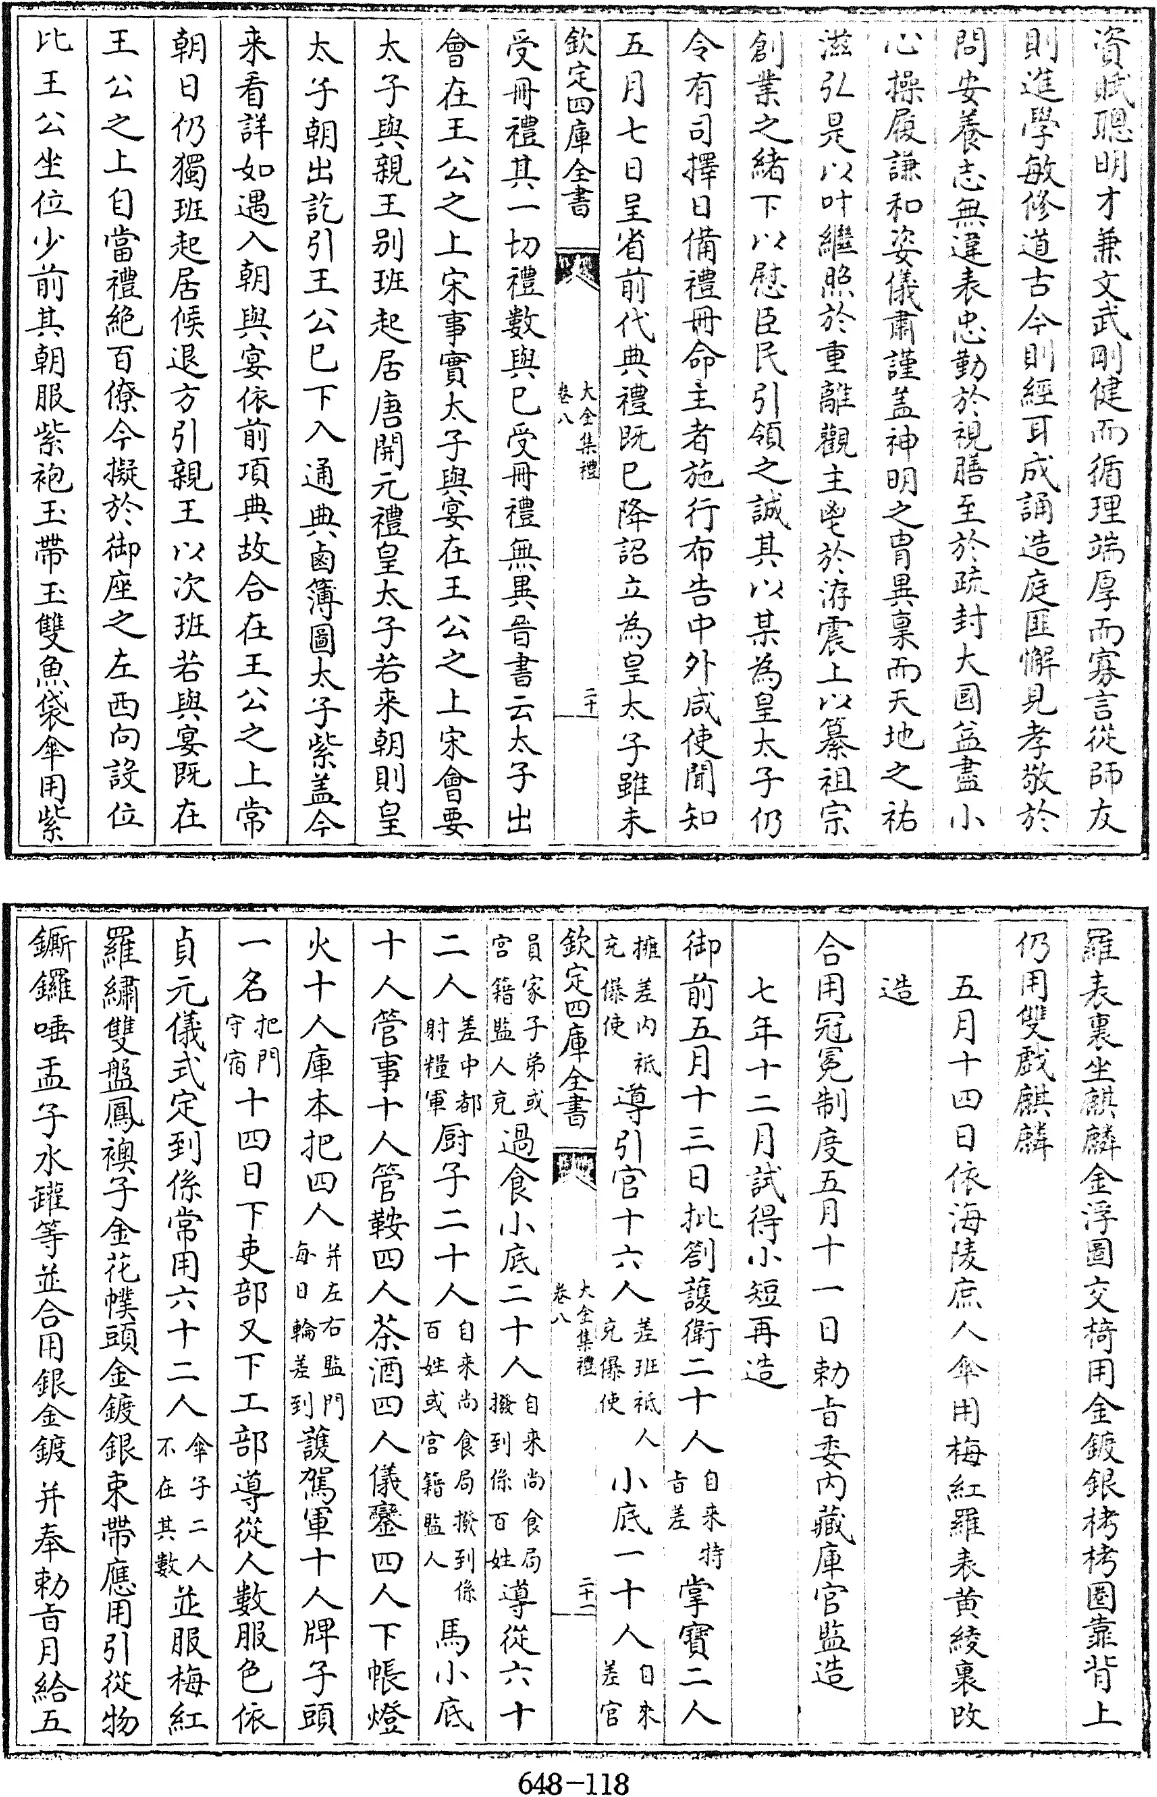 資賦聰明才兼文武剛健而循理端厚而寡言從師友
則進學敏修道古今則經耳成誦造庭匪懈見孝敬於
問安養志無違表忠勤於視膳至於疏封大國益盡小
心操履謙和姿儀肅謹蓋神明之胄異稟而天地之祐
滋弘是以叶繼照於重離觀主鬯於洊震上以纂祖宗
創業之緒下以慰臣民引領之誠其以某為皇太子仍
令有司擇日備禮冊命主者施行布告中外咸使聞知
五月七日呈省前代典禮既已降詔立為皇太子雖未
欽定四庫全書
大金集禮
卷八
二十
受冊禮其一切禮數與已受冊禮無異晉書云太子出
會在王公之上宋事實太子與宴在王公之上宋會要
太子與親王别班起居唐開元禮皇太子若來朝則皇
太子朝出訖引王公已下入通典鹵簿圖太子紫蓋今
来看詳如遇入朝與宴依前項典故合在王公之上常
朝日仍獨班起居候退方引親王以次班若與宴既在
王公之上自當禮絶百僚今擬於御座之左西向設位
比王公坐位少前其朝服紫袍玉帶玉雙魚袋傘用紫
羅表裏坐麒麟金浮圖交椅用金鍍銀栲栲圈靠背上
仍用雙戲麒麟
五月十四日依海陵庶人傘用梅紅羅表黄綾裏改
造
合用冠冕制度五月十一日勅旨委内藏庫官監造
七年十二月試得小短再造
御前五月十三日批劄護衛二十人自来特旨差掌寶二人
擁差内祗充傔使導引官十六人差班祗人充傔使小底一十人自来差官
欽定四庫全書
大金集禮
卷八
二十一
員家子弟或宫籍監人充過食小底二十人自来尚食局撥到係百姓導從六十
二人差中都射糧軍厨子二十人自来尚食局撥到係百姓或宫籍監人馬小底
十人管事十人管鞍四人茶酒四人儀鸞四人下帳燈
火十人庫本把四人并左右監門每日輪差到護駕軍十人牌子頭
一名把門守宿十四日下吏部又下工部導從人數服色依
貞元儀式定到係常用六十二人傘子二人不在其數並服梅紅
羅繡雙盤鳳襖子金花幞頭金鍍銀束帶應用引從物
鐁鑼唾盂子水罐等並合用銀金鍍并奉勅旨月給五
648-118